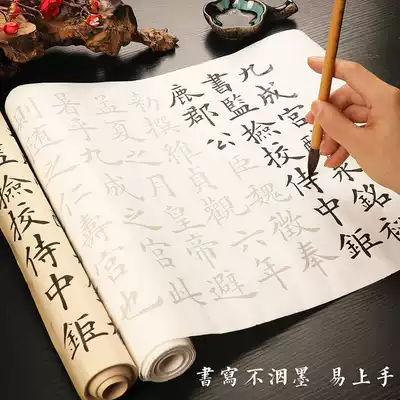 九成宮泉銘秘
書監撿挍侍中鉅
鹿郡公臣魏徵奉
勑撰維貞觀六年
孟夏之月皇帝避
暑乎九成之宮此
則隨之仁壽宮也
監撿挍侍中鉅
書寫不洇墨 易上手